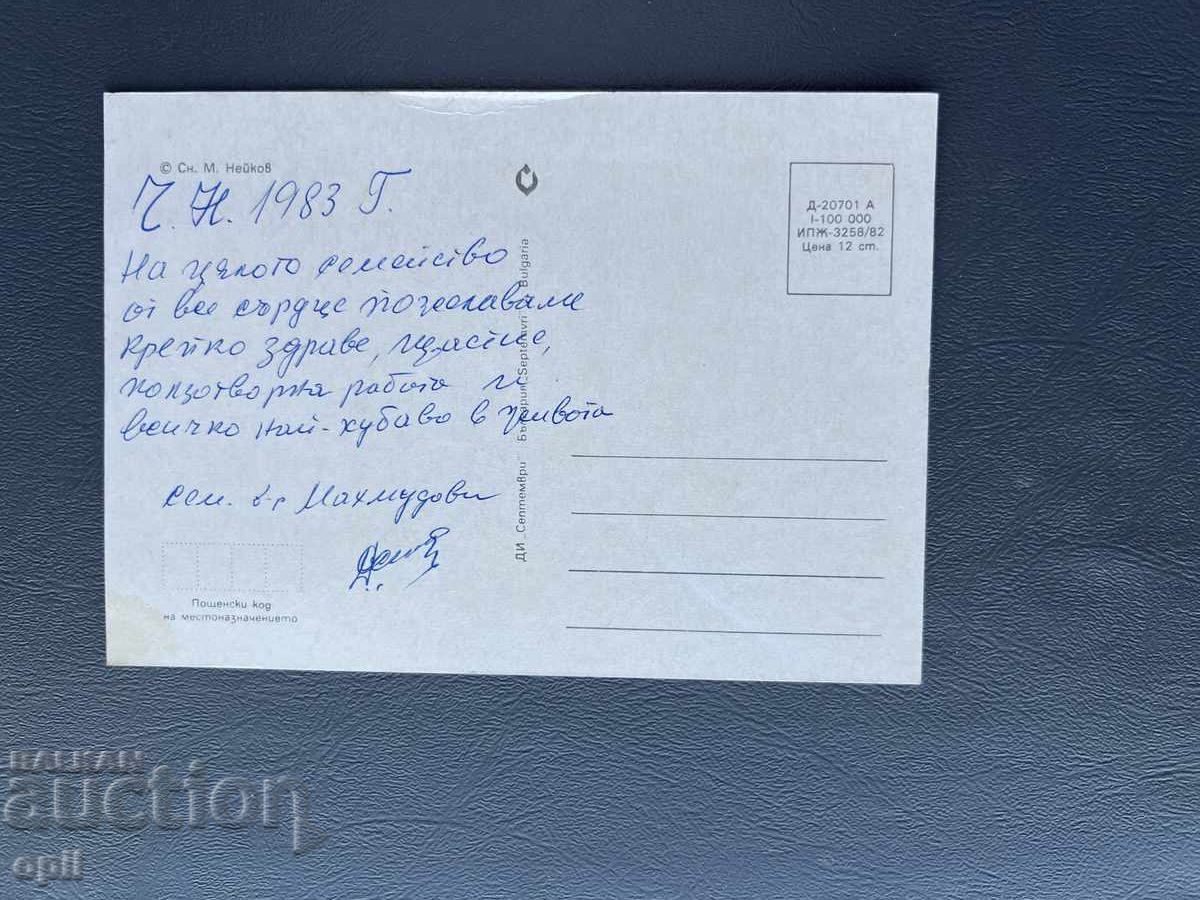 © Сн. М. Нейков
Ч. Н. 1983 Г.
На цялото семейство
от все сърдце пожелаваме
крепко здраве, щастие,
ползотворна работа и
всичко най-хубаво в живота
сем. д-р Махмудови
Пощенски код
на местоназначението
ДИ „Септември" България Septemvri Bulgaria
Д-20701 А
I-100 000
ИПЖ-3258/82
Цена 12 ст.
BALKAN
auction
opii